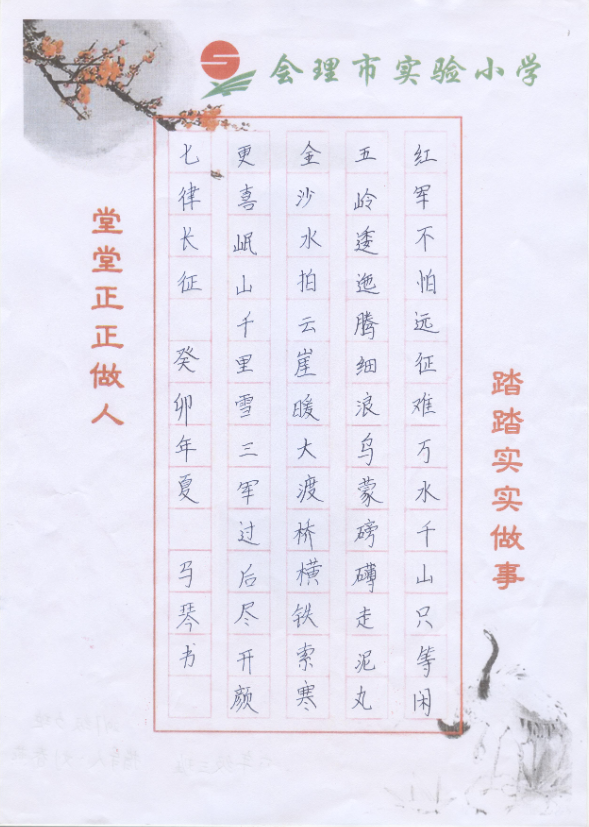 会理市实验小学
堂堂正正做人
踏踏实实做事
红军不怕远征难万水千山只等闲
五岭逶迤腾细浪乌蒙磅礴走泥丸
金沙水拍云崖暖大渡桥横铁索寒
更喜岷山千里雪三军过后尽开颜
七律长征 癸卯年夏 马琴书